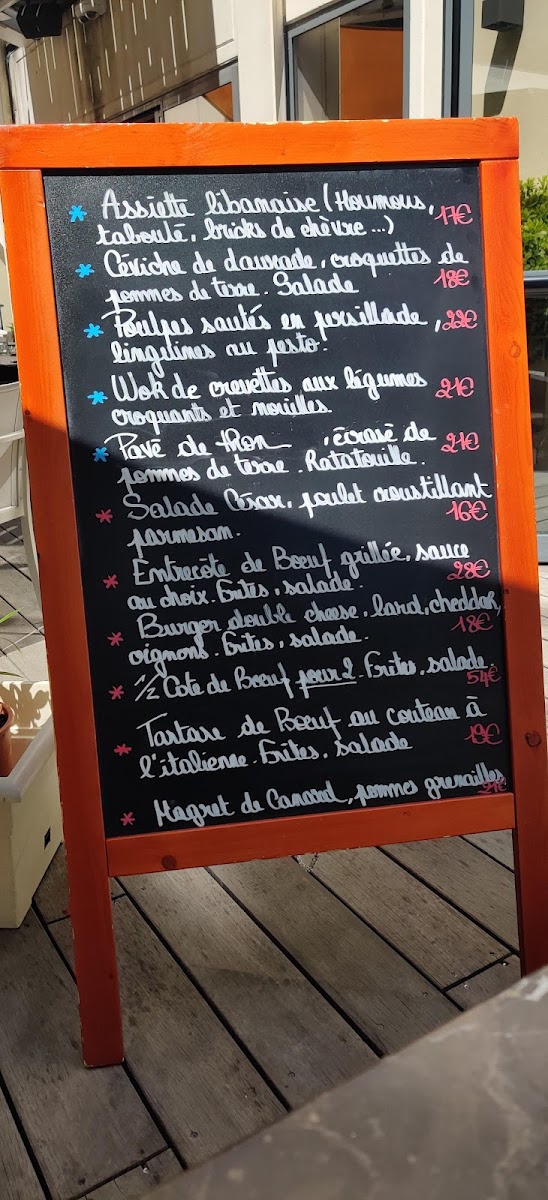 * Assiette libanaise (Houmous, 17€
taboulé, bricks de chèvre ...)
* Céviche de daurade, croquettes de
pommes de terre. Salade 18€
* Poulpes sautés en persillade, 22€
linguines au pesto.
* Wok de crevettes aux légumes 21€
croquants et nouilles.
* Pavé de thon , écrasé de 21€
pommes de terre. Ratatouille.
* Salade César, poulet croustillant
parmesan. 16€
* Entrecôte de Boeuf grillée, sauce
au choix. Frites, salade. 28€
* Burger double cheese. lard, cheddar,
oignons. Frites, salade. 18€
* 1/2 Cote de Boeuf pour 2. Frites, salade.
54€
* Tartare de Boeuf au couteau à
l'italienne. Frites, salade 19€
* Magret de Canard, pommes grenailles
21€